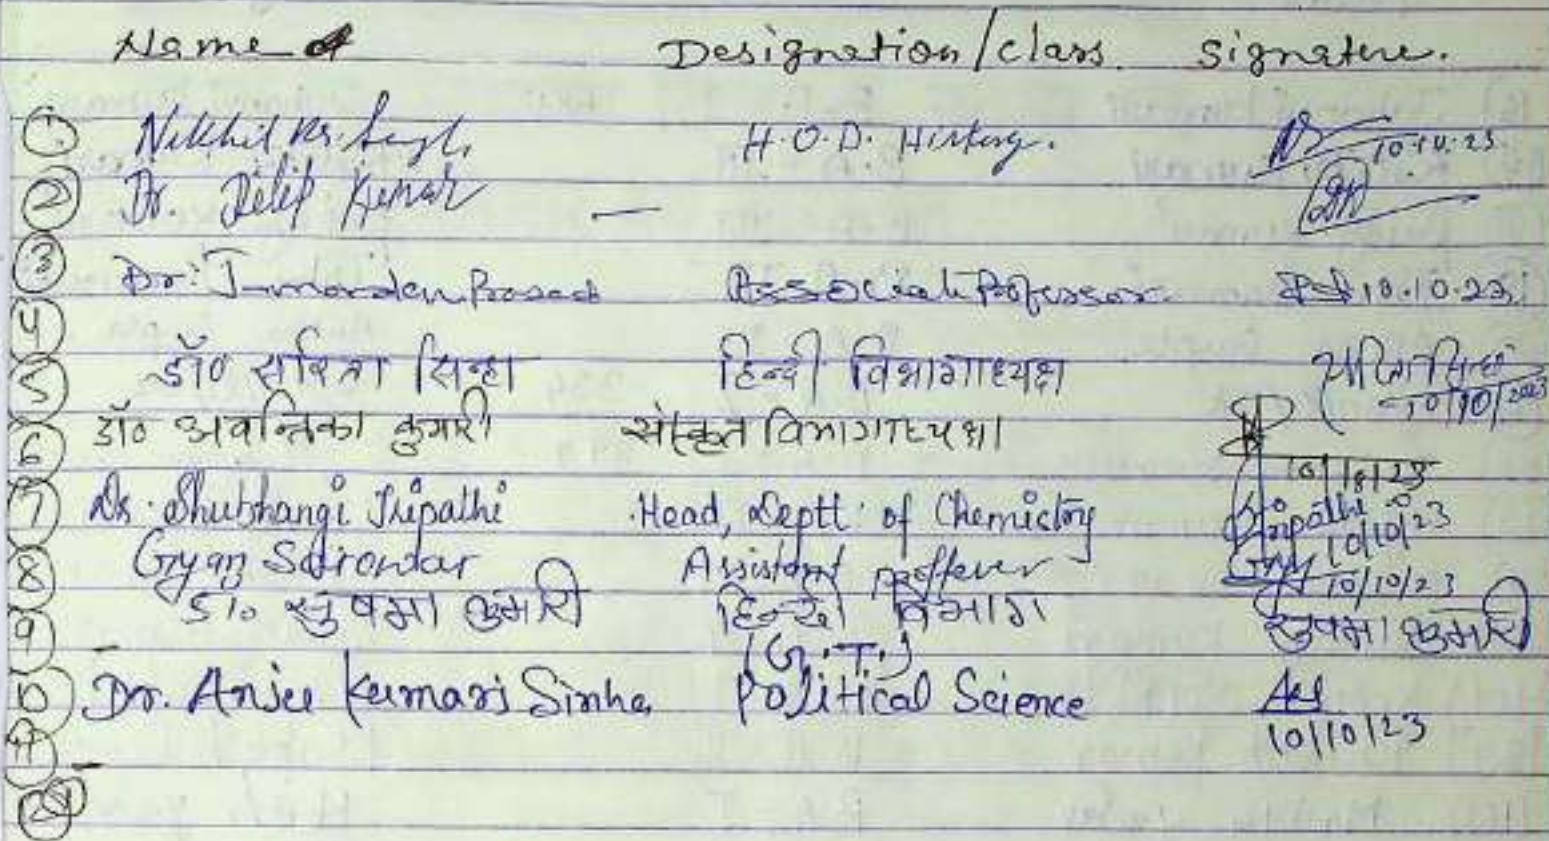 Name of Designation/class. Signature.
1. Nikhil Kr. Singh H.O.D. History. 10.10.23
2 Dr. Dilip Kumar — DK
3 Dr. Prasad Associate Professor 10.10.23
4
5 डॉ० सरिता सिन्हा हिन्दी विभागाध्यक्ष सरिता सिन्हा 10/10/2023
6 डॉ० अवन्तिका कुमारी संस्कृत विभागाध्यक्षा 10/10/23
7 Dr. Shubhangi Tripathi Head, Deptt. of Chemistry Tripathi 10/10/23
8 Gyan Assistant proffesser 10/10/23
डॉ० सुषमा कुमारी हिन्दी विभाग सुषमा कुमारी
9 - (G.T.)
10 Dr. Anjee Kumari Sinha Political Science 10/10/23
11 -
12